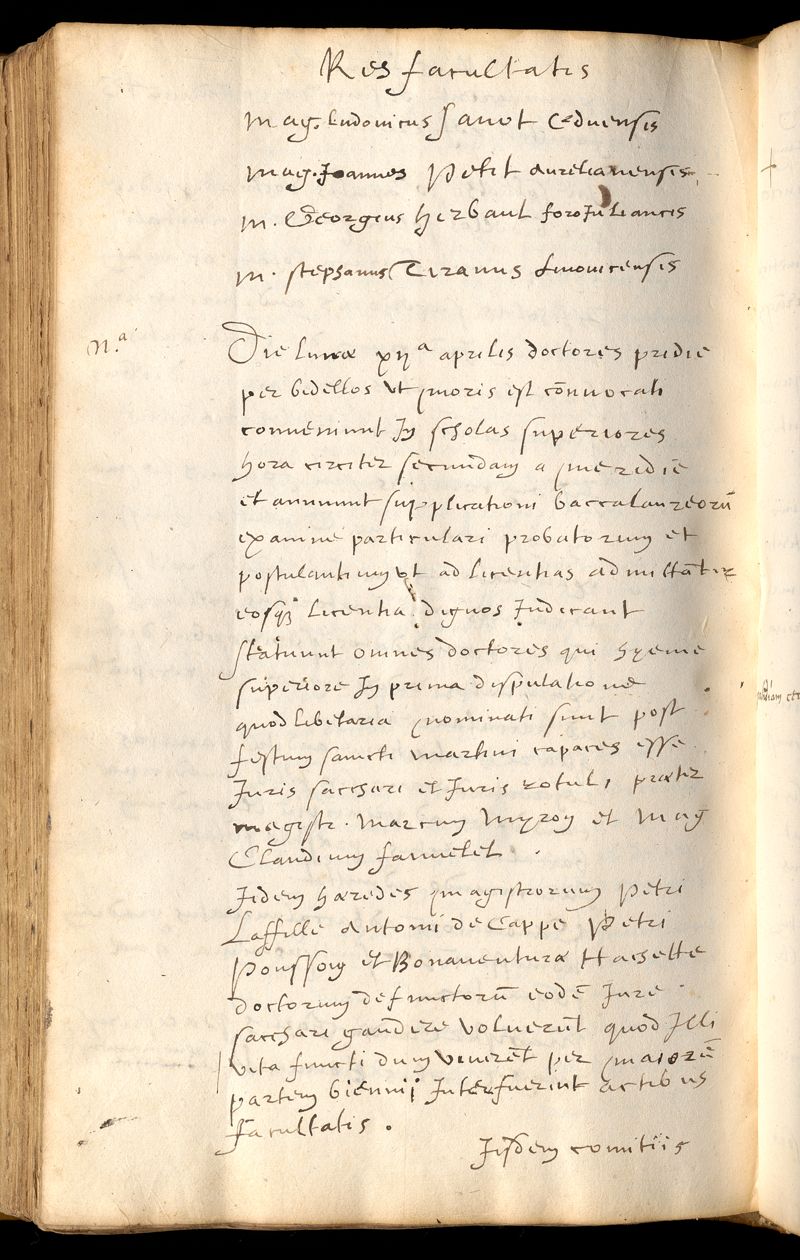 Res facultatis
Mag. Ludovicus Savot Eduensis
Mag. Joannes Petit Aurelianensis
M. Georgius Herbaut foroJuliancis
M. Stephanus Tiranus Lmovicensis
N.ª
Die Lunæ xijª aprilis doctores pridie
per bidellos ut moris est cōnvocati
conveniunt In scholas superiores
hora circiter secundam a meridie
et annuunt supplicationi baccalaureorū
examine particulari probatorum et
postulantium ut ad licentias admittātur
eosq; licentia dignos Judicant
Statuunt omnes doctores qui hyeme
superiore In prima disputatione
quodlibetaria nominati sunt post
festum sancti Martini capaces esse
Juris sacchari et Juris rotuli, præter
magistr. Marcum Myron et Mag
Claudium
Jidem hæredes magistrorum Petri
Laffille Antonii de Cappe Petri
Poussony et Bonaventuræ Hachette
doctorum defunctorū eodē Jure
sacchari gaudere voluerūt quod Illi
vita functi dum viverēt per maiorē
partem biennii Interfuerint actibus
facultatis.
Jisdem comitiis